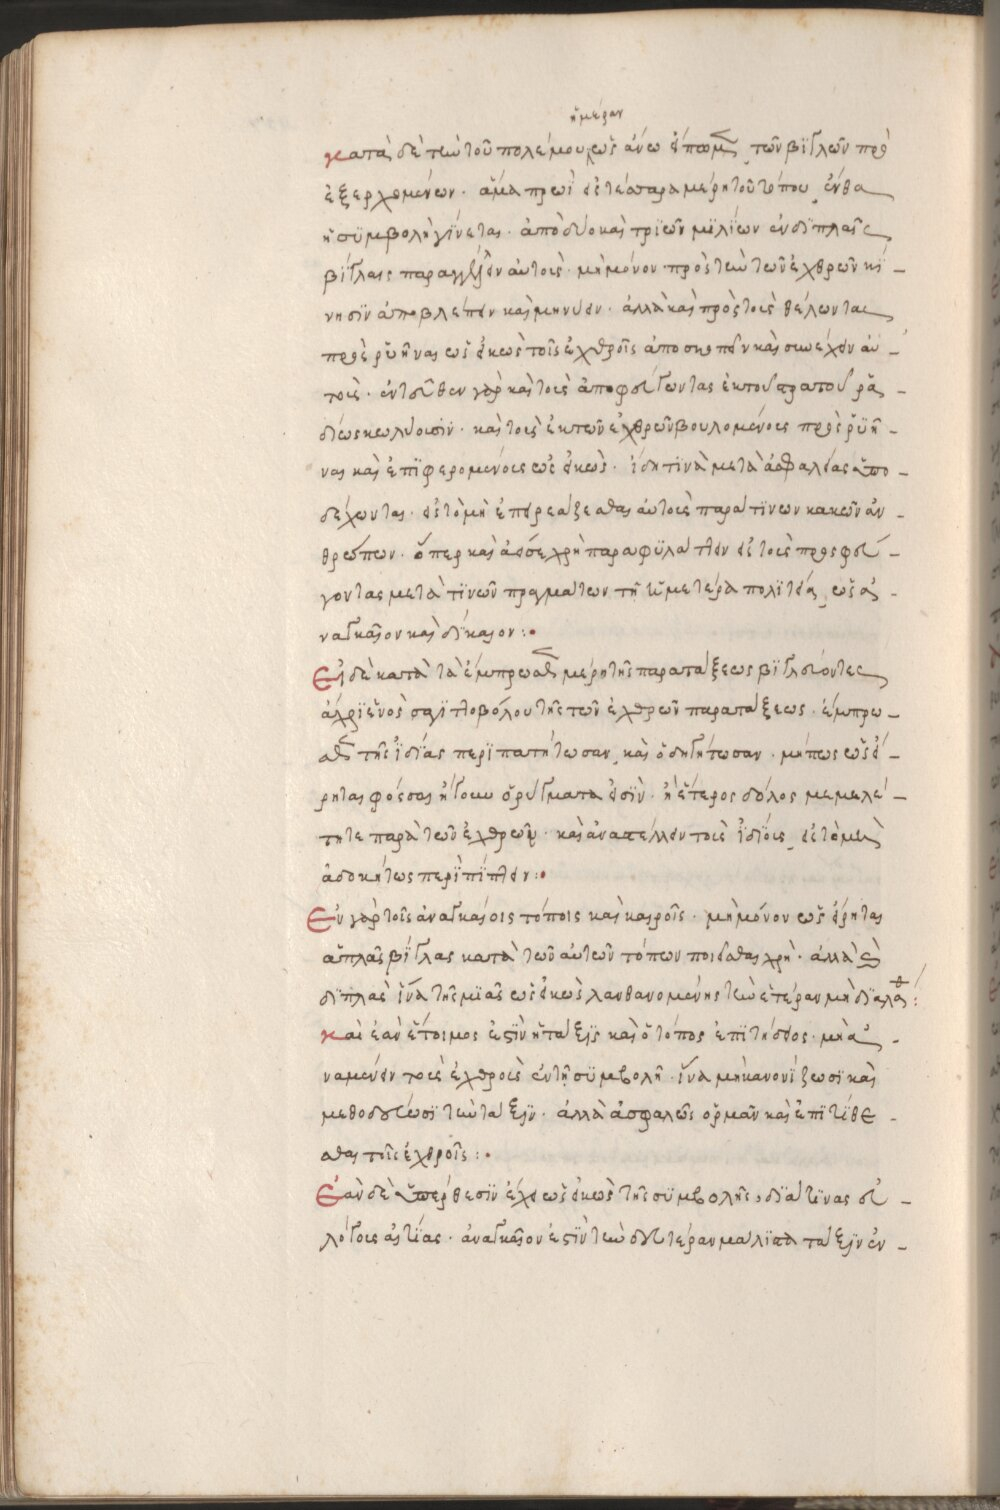 ἡμέραν
κατὰ δὲ τὴν τοῦ πολέμου, ὡς ἄνω εἴπωμεν, τῶν βιγλῶν προ
εξερχομένων. ἅμα πρωὶ εἰς τέσσαρα μέρη τοῦ τόπου, ἔνθα
ἡ συμβολὴ γίνεται. ἀπὸ δύο καὶ τριῶν μιλίων ἐν διπλαῖς
βίγλαις παραγγέλλειν αὐτοῖς. μὴ μόνον πρὸς τὴν τῶν ἐχθρῶν κί-
νησιν ἀποβλέπειν καὶ μηνύειν. ἀλλὰ καὶ πρὸς τοὺς θέλοντας
προσρυῆναι ὡς εἰκὼς τοῖς ἐχθροῖς ἀποσκοπεῖν καὶ συνέχειν αὐ-
τούς. ἐντεῦθεν γὰρ καὶ τοὺς ἀποφεύγοντας ἐκ τοῦ στρατοῦ ρα-
δίως κωλύουσιν. καὶ τοὺς ἐκ τῶν ἐχθρῶν βουλομένους προσρυῆ-
ναι καὶ ἐπιφερομένους ὡς εἰκὼς. εἴδη τινὰ μετὰ ἀσφαλείας ὑπο-
δέχονται. εἰς τὸ μὴ ἐπηρεάζεσθαι αὐτοὺς παρά τινων κακῶν ἀν-
θρώπων. ὅπερ καὶ ἀεὶ σε χρὴ παραφυλάττειν εἰς τοὺς προσφεύ-
γοντας μετὰ τινῶν πραγμάτων τῇ ἡμετέρα πολιτεία, ὡς ἀ-
ναγκαῖον καὶ δίκαιον:
Εἰ δὲ κατὰ τὰ ἔμπρωσθεν μέρη τῆς παρατάξεως βιγλεύοντες
ἄχρι ἑνὸς σαγιττοβόλου τῆς τῶν ἐχθρῶν παρατάξεως. ἔμπρω-
σθεν τῆς ἰδίας περιπατήτωσαν, καὶ ὁδηγήτωσαν. μήπως ὡς εἴ-
ρηται φόσσαι ἤγουν ὀρύγματα εἰσὶν. ἢ ἕτερος δόλος μεμελέ-
τητε παρὰ τῶν ἐχθρῶν. καὶ ἀναστέλλειν τοὺς ἰδίους, εἰς τὸ μὴ
ἀδοκήτως περιπίπτειν:
Ἐν γὰρ τοῖς ἀναγκαίοις τόποις καὶ καιροῖς. μὴ μόνον ὡς εἴρηται
ἁπλαῖς βίγλας κατὰ τῶν αὐτῶν τόπων ποιεῖσθαι χρὴ. ἀλλὰ καὶ
διπλὰς ἵνα τῆς μιᾶς ὡς εἰκὼς λανθανομένης τὴν ἑτέραν μὴ διαλάθ:
καὶ ἐὰν ἕτοιμος ἐστὶν ἡ τάξις καὶ ὁ τόπος ἐπιτήδειος. μὴ ἀ-
ναμένειν τοὺς ἐχθροὺς ἐν τῇ συμβολῇ. ἵνα μὴ κανονίζωσι καὶ
μεθοδεύωσι τὴν τάξιν. ἀλλὰ ἀσφαλῶς ὁρμᾶν καὶ ἐπιτίθε-
σθαι τοῖς ἐχθροῖς:
Ἐὰν δὲ ὑπέρθεσιν ἔχει ὡς εἰκὼς τῆς συμβολῆς, διά τινας εὐ-
λόγους αἰτίας. ἀναγκαῖον ἐστὶν τὴν δευτέραν μάλιστα τάξιν ἐν-